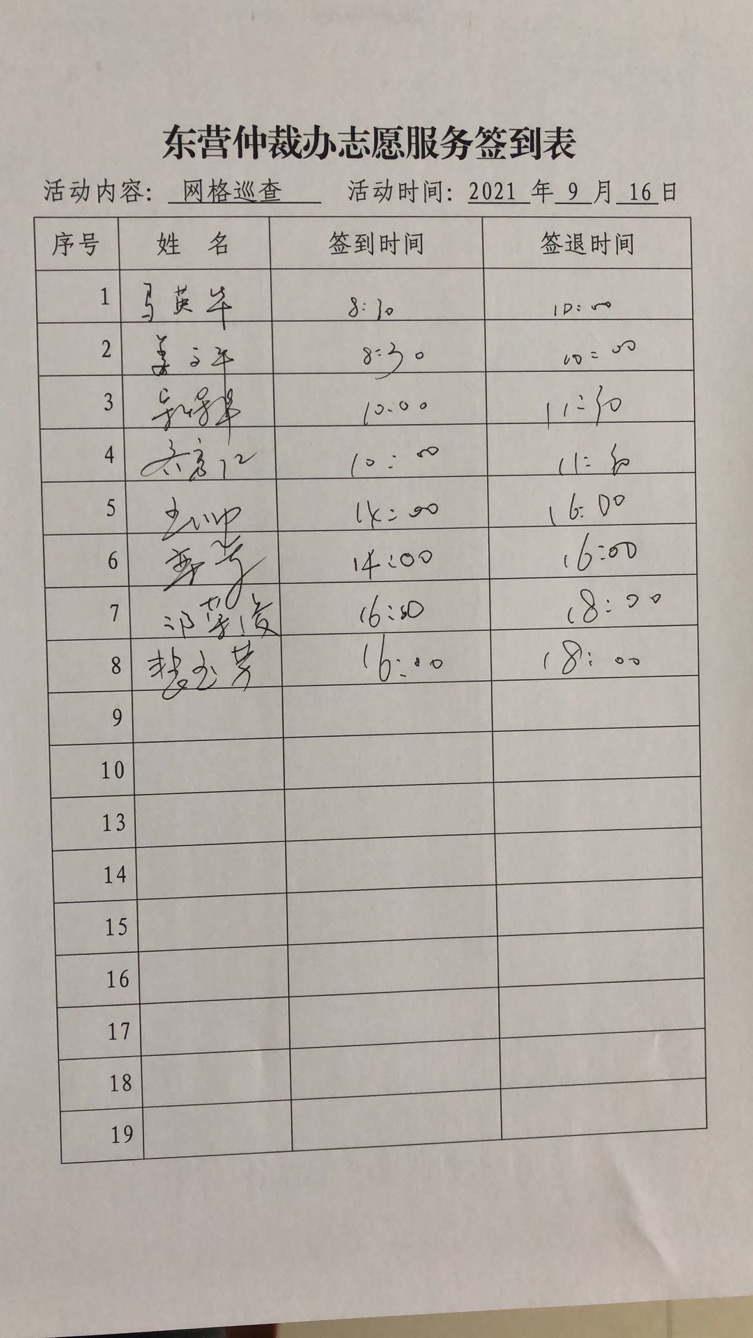 东营仲裁办志愿服务签到表
活动内容： 网格巡查 活动时间：2021 年 9 月 16 日
序号 姓 名 签到时间 签退时间
1 马英华 8:30 10:00
2 姜文华 8:30 10:00
3 10:00 11:30
4 10:00 11:30
5 14:00 16:00
6 14:00 16:00
7 16:00 18:00
8 16:00 18:00
9
10
13
14
15
16
17
18
19